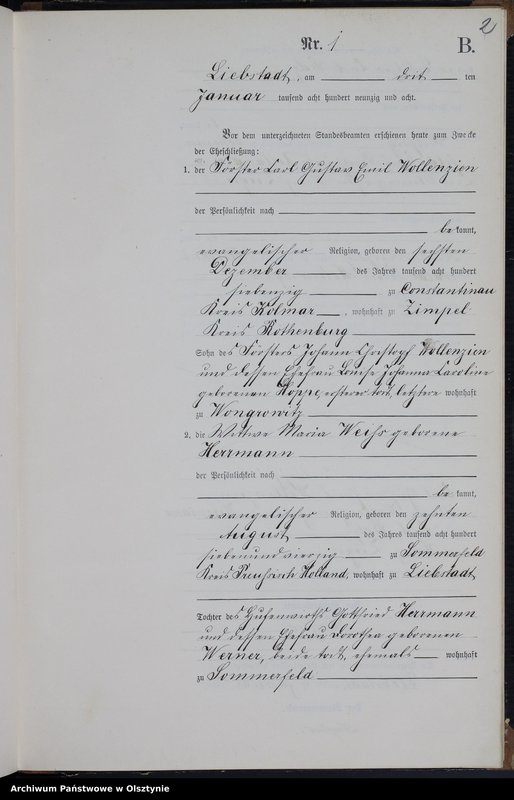 2
Nr. 1 B.
Liebstadt, am drit ten
Januar tausend acht hundert neunzig und acht.
Vor dem unterzeichneten Standesbeamten erschienen heute zum Zwecke
der Eheschließung:
1. der Förster Carl Gustav Emil Wollenzien
der Persönlichkeit nach
be kannt,
evangelischer Religion, geboren den sechsten
Dezember des Jahres tausend acht hundert
siebenzig zu Constantinau
Kreis Kolmar, wohnhaft zu Zimpel
Kreis Rothenburg
Sohn des Försters Johann Christoph Wollenzien
und dessen Ehefrau Louise Johanna Caroline
geborenen Hoppe, ersterer todt, letztere wohnhaft
zu Wongrowitz
2. die Wittwe Maria Weihs geborene
Herrmann
der Persönlichkeit nach
be kannt,
evangelischer Religion, geboren den zehnten
August des Jahres tausend acht hundert
siebenundvierzig zu Sommerfeld
Kreis Preußisch Holland, wohnhaft zu Liebstadt
Tochter des Hufenwirths Gottfried Herrmann
und dessen Ehefrau Dorothea geborenen
Werner, beide todt, ehemals wohnhaft
zu Sommerfeld
Archiwum Państwowe w Olsztynie